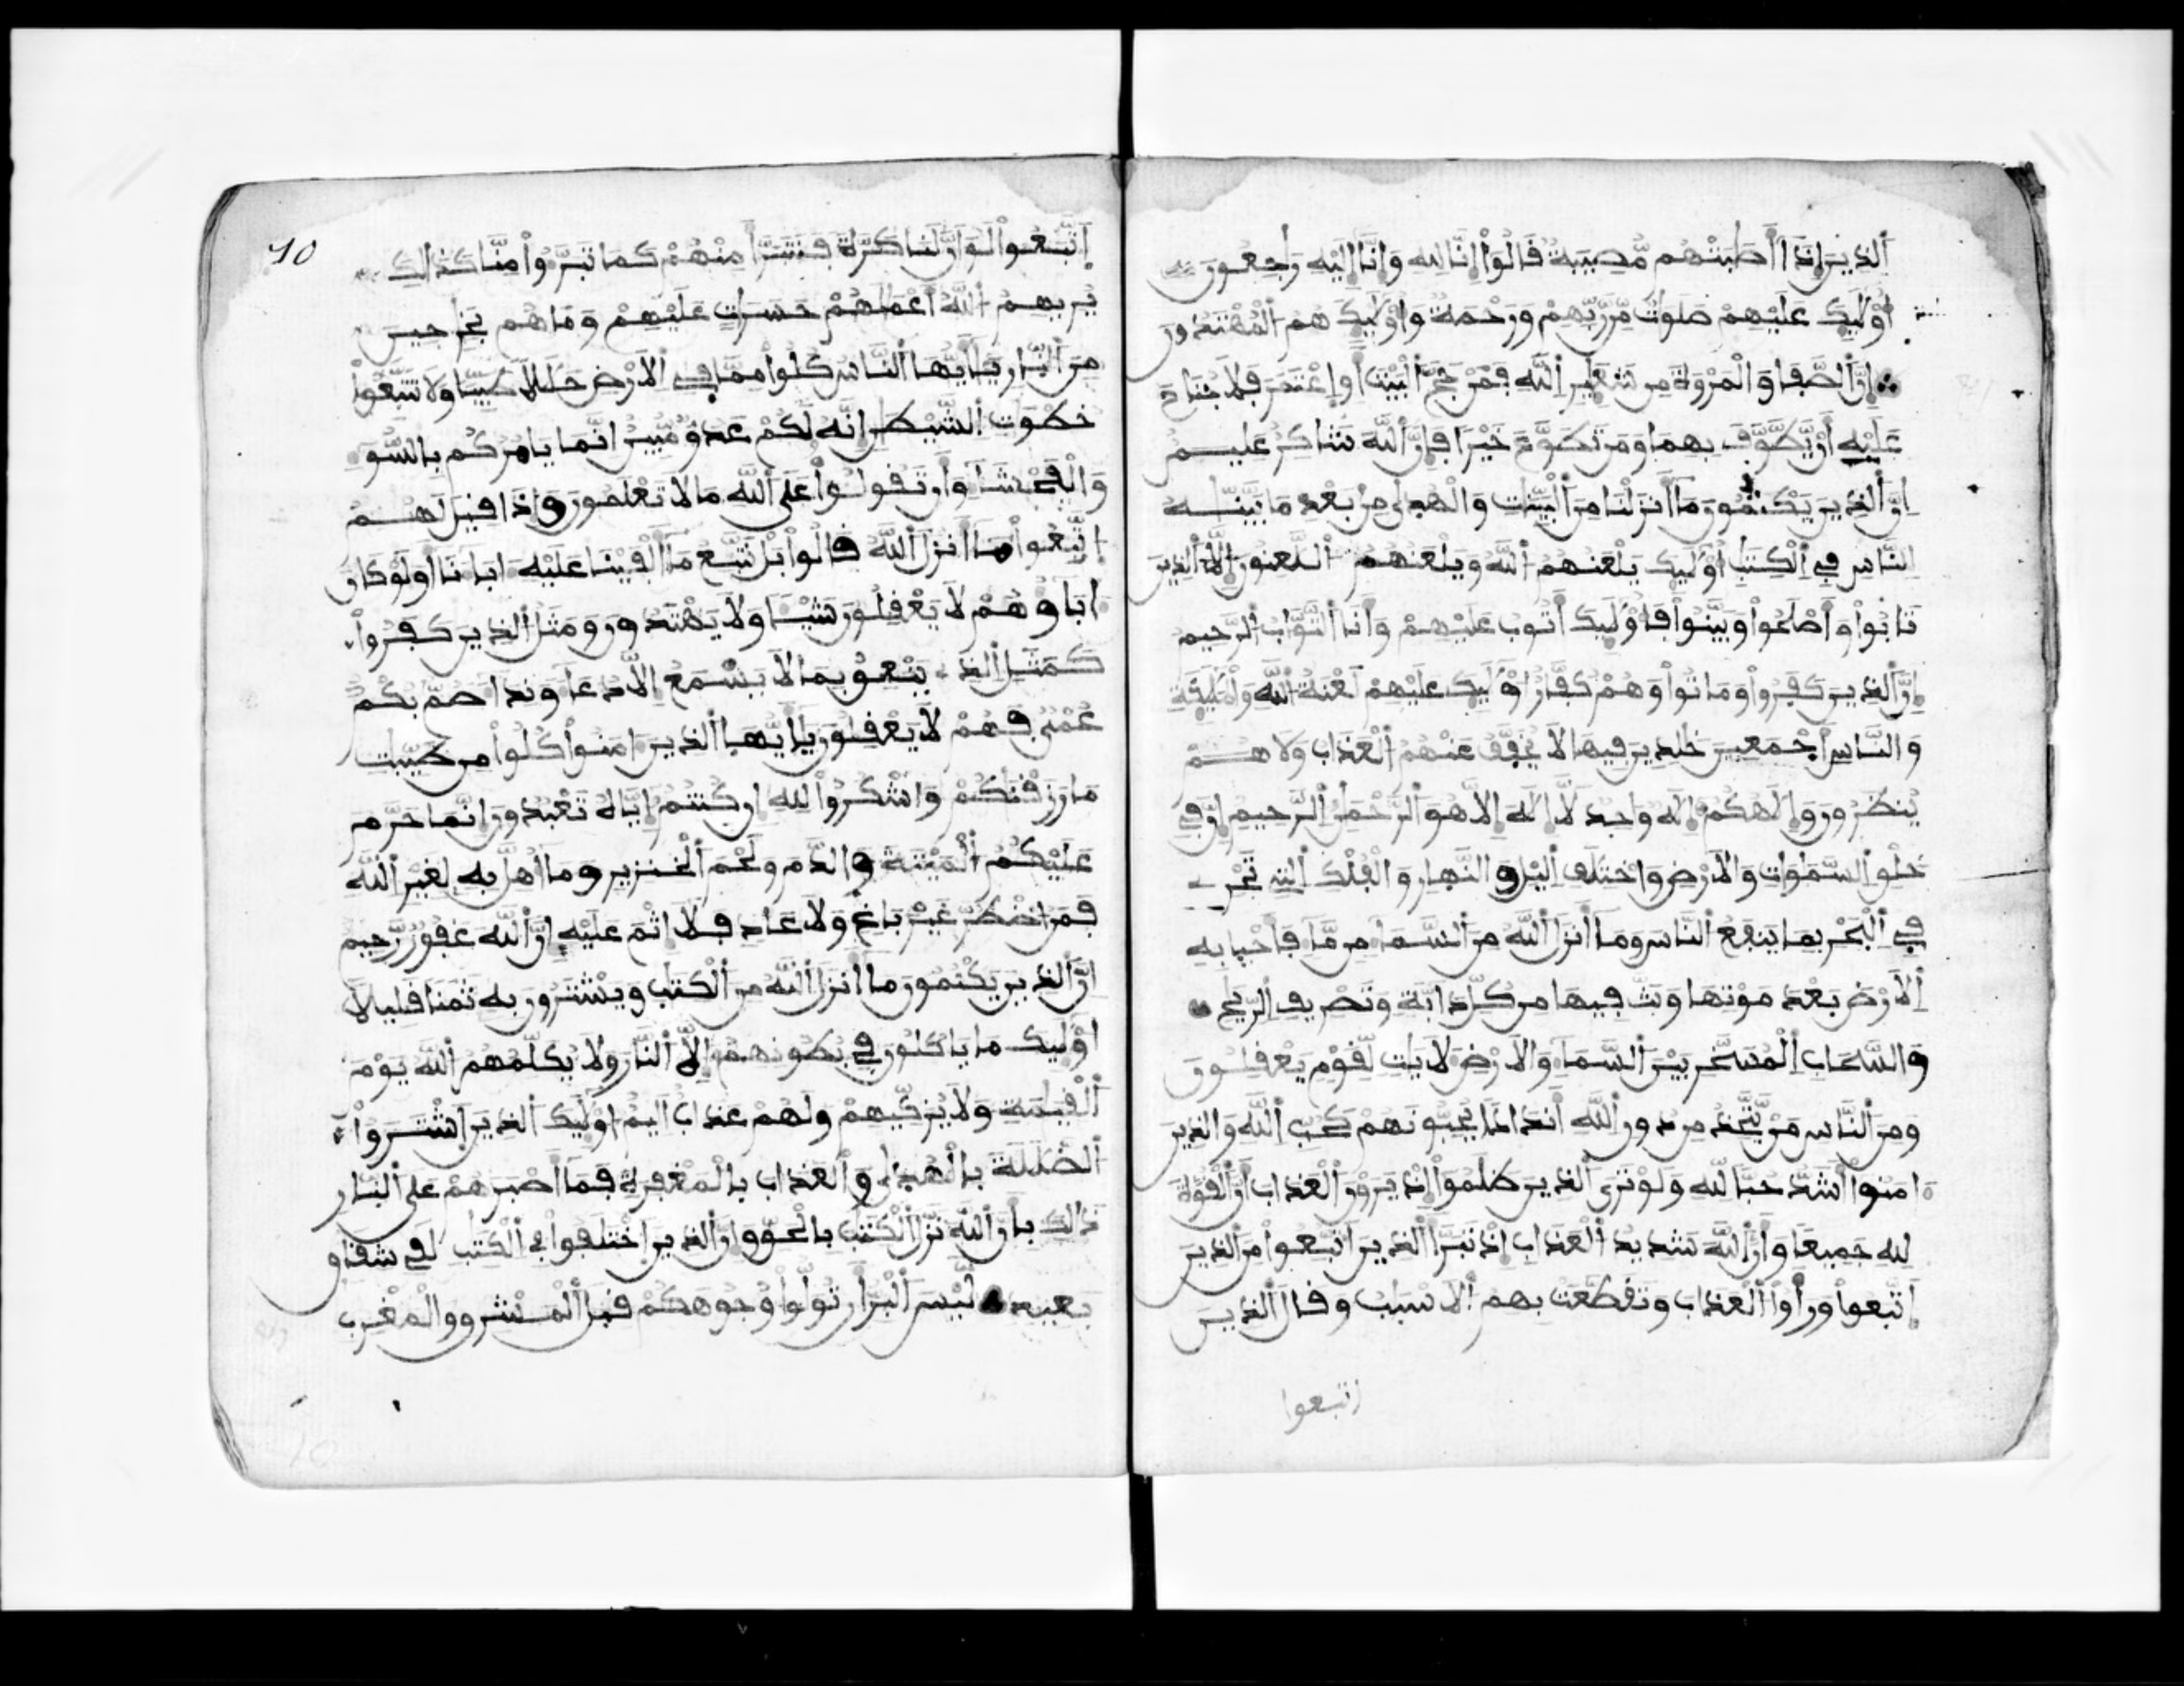 الذين إذا أصبتهم مصيبة قالوا إنا لله وإنا إليه رجعون
أوليك عليهم صلوت من ربهم ورحمة وأوليك هم المهتدون
إن الصفا والمروة من شعير الله فمن حج البيت أو اعتمر فلا جناح
عليه أن يطوف بهما ومن تطوع خيرا فإن الله شاكر عليم
إن الذين يكتمون ما أنزلنا من البينات والهدى من بعد ما بينه
للناس في الكتب أوليك يلعنهم الله ويلعنهم اللعنون إلا الذين
تابوا وأصلحوا وبينوا فأوليك أتوب عليهم وأنا التواب الرحيم
إن الذين كفروا وماتوا وهم كفار أوليك عليهم لعنة الله والمليكة
والناس أجمعين خلدين فيها لا يخفف عنهم العذاب ولا هم
ينظرون وإلهكم إله وحد لا إله إلا هو الرحمن الرحيم إن في
خلق السموات والأرض واختلف اليل والنهار والفلك التي تجري
في البحر بما ينفع الناس وما أنزل الله من السما من ما فأحيا به
الأرض بعد موتها وبث فيها من كل دابة وتصريف الريح
والسحاب المسخر بين السما والأرض لأيت لقوم يعقلون
ومن الناس من يتخذ من دون الله أندادا يحبونهم كحب الله والذين
امنوا أشد حبا لله ولو ترى الذين ظلموا إذ يرون العذاب أن القوة
لله جميعا وأن الله شديد العذاب إذ تبرأ الذين اتبعوا من الذين
اتبعوا ورأوا العذاب وتقطعت بهم الأسباب وقال الذين
اتبعوا
10
اتبعوا لو أن لنا كرة فنتبرأ منهم كما تبروا منا كذلك
يريهم الله أعملهم حسرات عليهم وما هم بخرجين
من النار يأيها الناس كلوا مما في الأرض حللا طيبا ولا تتبعوا
خطوت الشيطن إنه لكم عدو مبين إنما يامركم بالسو
والفحشا وأن تقولوا على الله ما لا تعلمون وإذا قيل لهم
اتبعوا ما أنزل الله قالوا بل نتبع ما ألفينا عليه ابانا أولو كان
اباوهم لا يعقلون شيا ولا يهتدون ومثل الذين كفروا
كمثل الذي ينعق بما لا يسمع إلا دعا وندا صم بكم
عمي فهم لا يعقلون يأيها الذين امنوا كلوا من طيبت
ما رزقنكم واشكروا لله إن كنتم إياه تعبدون إنما حرم
عليكم الميتة والدم ولحم الخنزير وما أهل به لغير الله
فمن اضطر غير باغ ولا عاد فلا اثم عليه إن الله غفور رحيم
إن الذين يكتمون ما أنزل الله من الكتب ويشترون به ثمنا قليلا
أوليك ما ياكلون في بطونهم إلا النار ولا يكلمهم الله يوم
القيمة ولا يزكيهم ولهم عذاب اليم أوليك الذين اشتروا
الضللة بالهدى والعذاب بالمغفرة فما أصبرهم على النار
ذلك بأن الله نزل الكتب بالحق وإن الذين اختلفوا في الكتب لفي شقاق
بعيد ليس البر أن تولوا وجوهكم قبل المشرق والمغرب